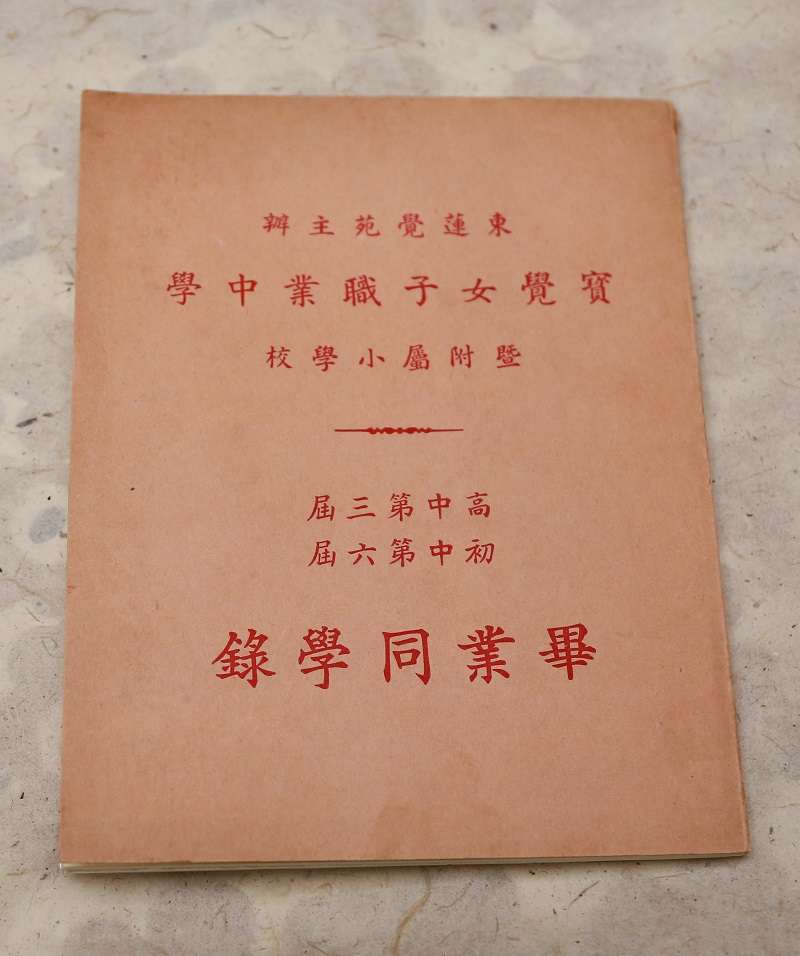 東蓮覺苑主辦
寳覺女子職業中學
暨附屬小學校
高中第三屆
初中第六屆
畢業同學錄